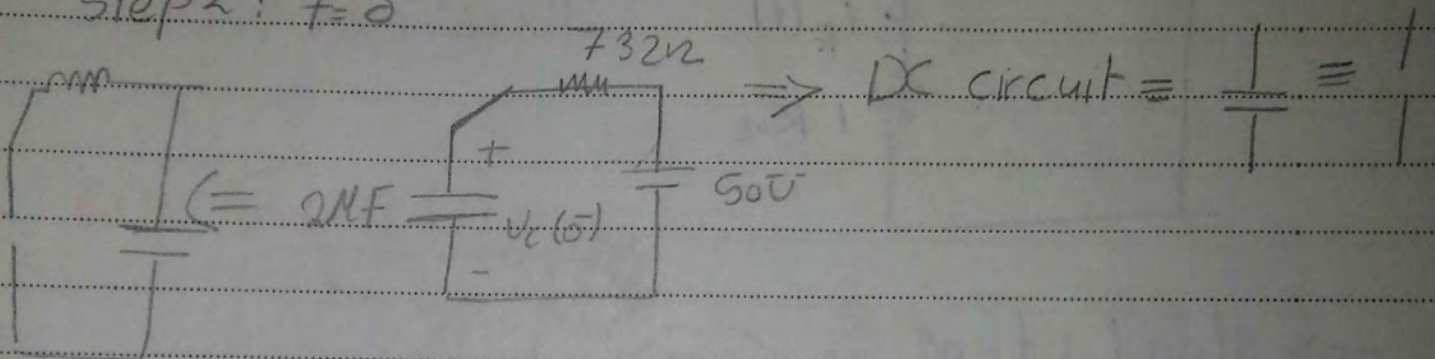 Step 2: t=0
732Ω
=> DC circuit ≡ ≡
<= 2μF
+
Vc(0-)
-
50V